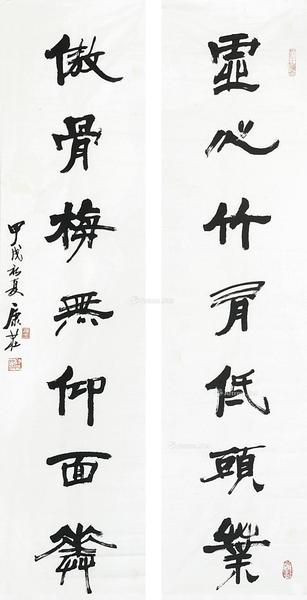 虚心竹有低頭葉
傲骨梅無仰面華
甲戌初夏 康莊